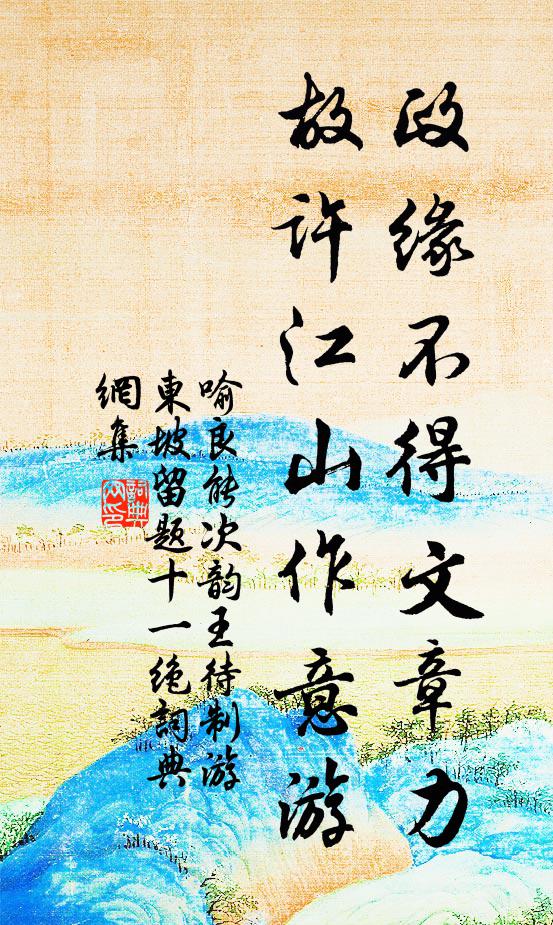 政緣不得文章力
故許江山作意游
喻良能次韵王待制游
東坡留題十一绝詞典
網集